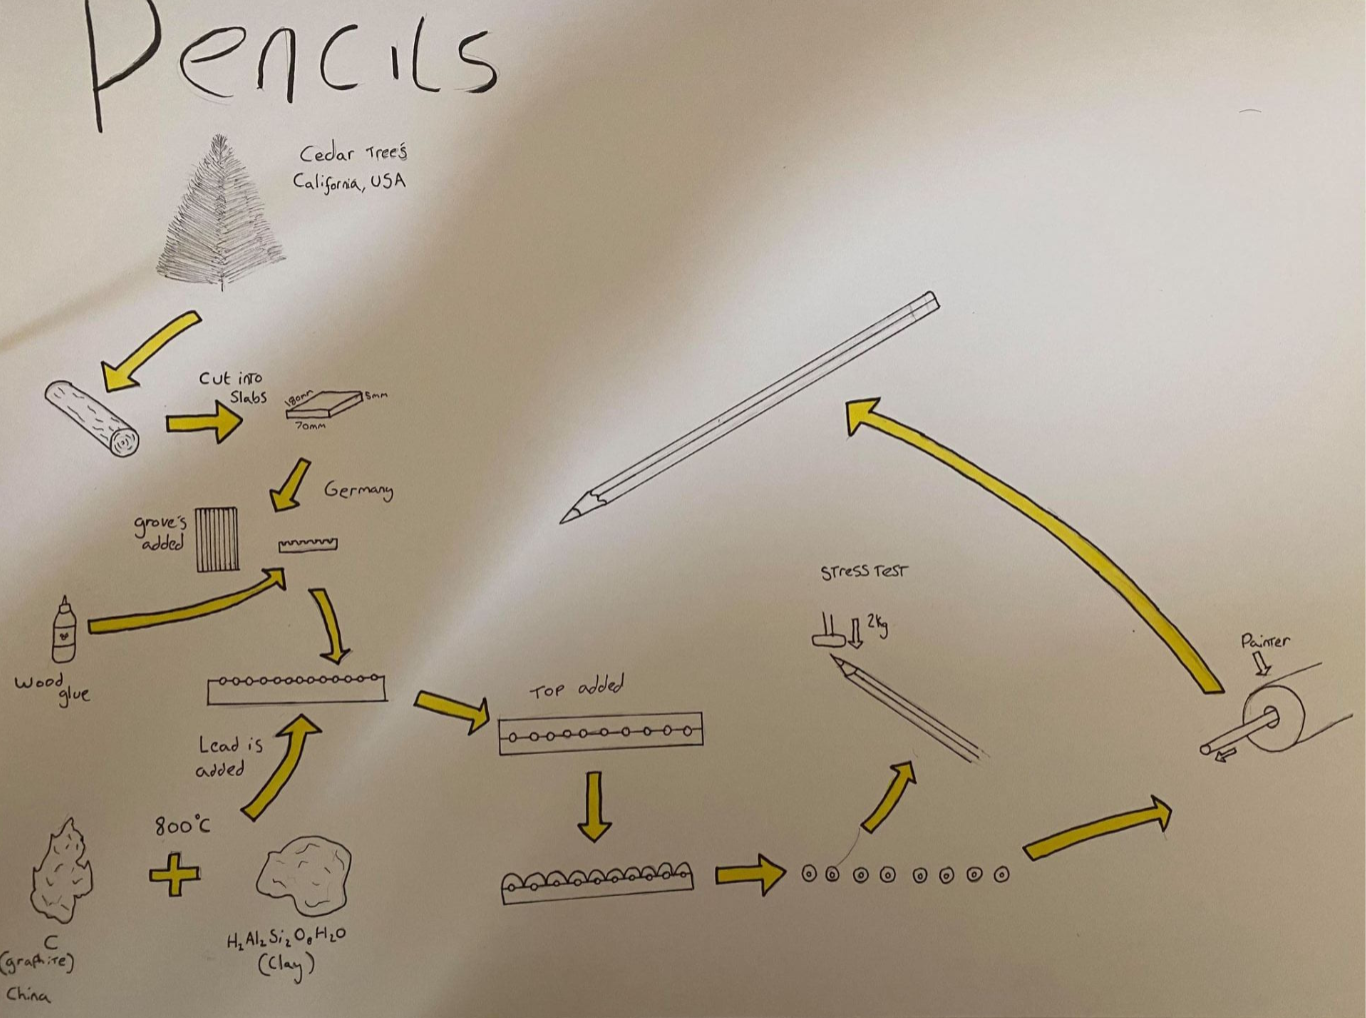 Pencils
Cedar Tree's
California, USA
Cut into
Slabs
180mm
5mm
70mm
Germany
grove's
added
Wood
glue
Lead is
added
800°C
C
(graphite)
China
H₂Al₂Si₂O₈H₂O
(Clay)
TOP added
STRESS TEST
2kg
Painter